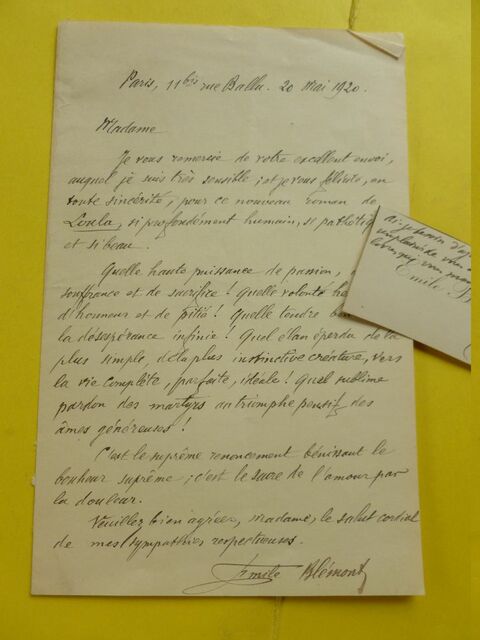 Paris, 11bis rue Ballu. 20 Mai 1920.
Madame
Je vous remercie de votre excellent envoi,
auquel je suis très sensible ; et je vous félicite, en
toute sincérité, pour ce nouveau roman de
Loula, si profondément humain, si pathétiq
et si beau.
Quelle haute puissance de passion, de
souffrance et de sacrifice ! Quelle volonté h
d'honneur et de pitié ! Quelle tendre
la désespérance infinie ! Quel élan éperdu de la
plus simple, de la plus instinctive créature, vers
la vie complète, parfaite, idéale ! Quel sublime
pardon des martyrs au triomphe pensif des
âmes généreuses !
C'est le suprême renoncement bénissant le
bonheur suprême ; c'est le sacre de l'amour par
la douleur.
Veuillez bien agréer, Madame, le salut cordial
de mes sympathies respectueuses.
Emile Blémont
de vous
Emile